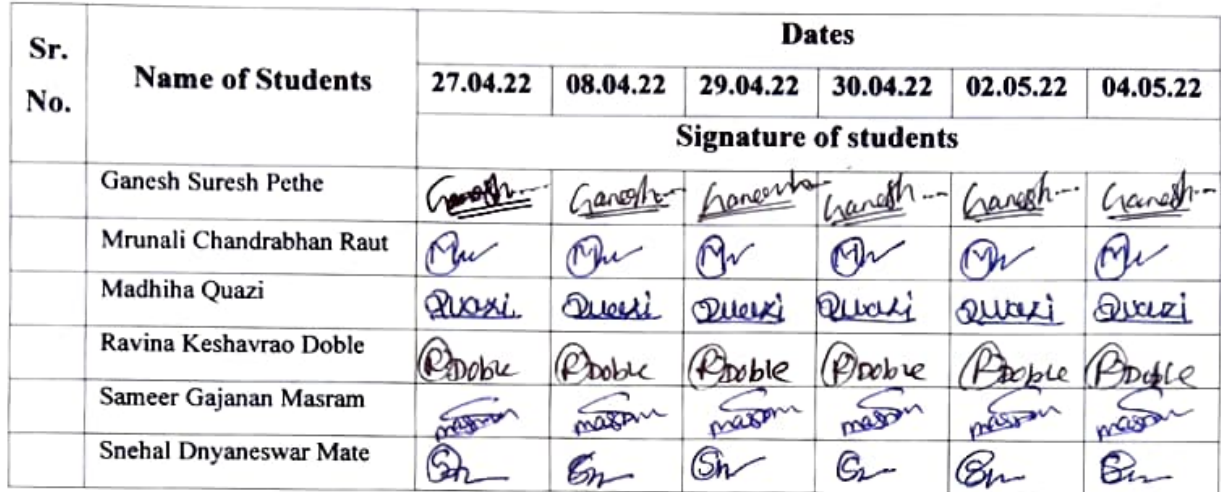 Sr. No.
Name of Students
Dates
27.04.22 08.04.22 29.04.22 30.04.22 02.05.22 04.05.22
Signature of students
Ganesh Suresh Pethe Ganesh Ganesh Ganesh Ganesh Ganesh
Mrunali Chandrabhan Raut
Madhiha Quazi Quazi Quazi Quazi Quazi Quazi Quazi
Ravina Keshavrao Doble RDoble RDoble RDoble RDoble RDoble RDoble
Sameer Gajanan Masram masram masram masram masram masram masram
Snehal Dnyaneswar Mate